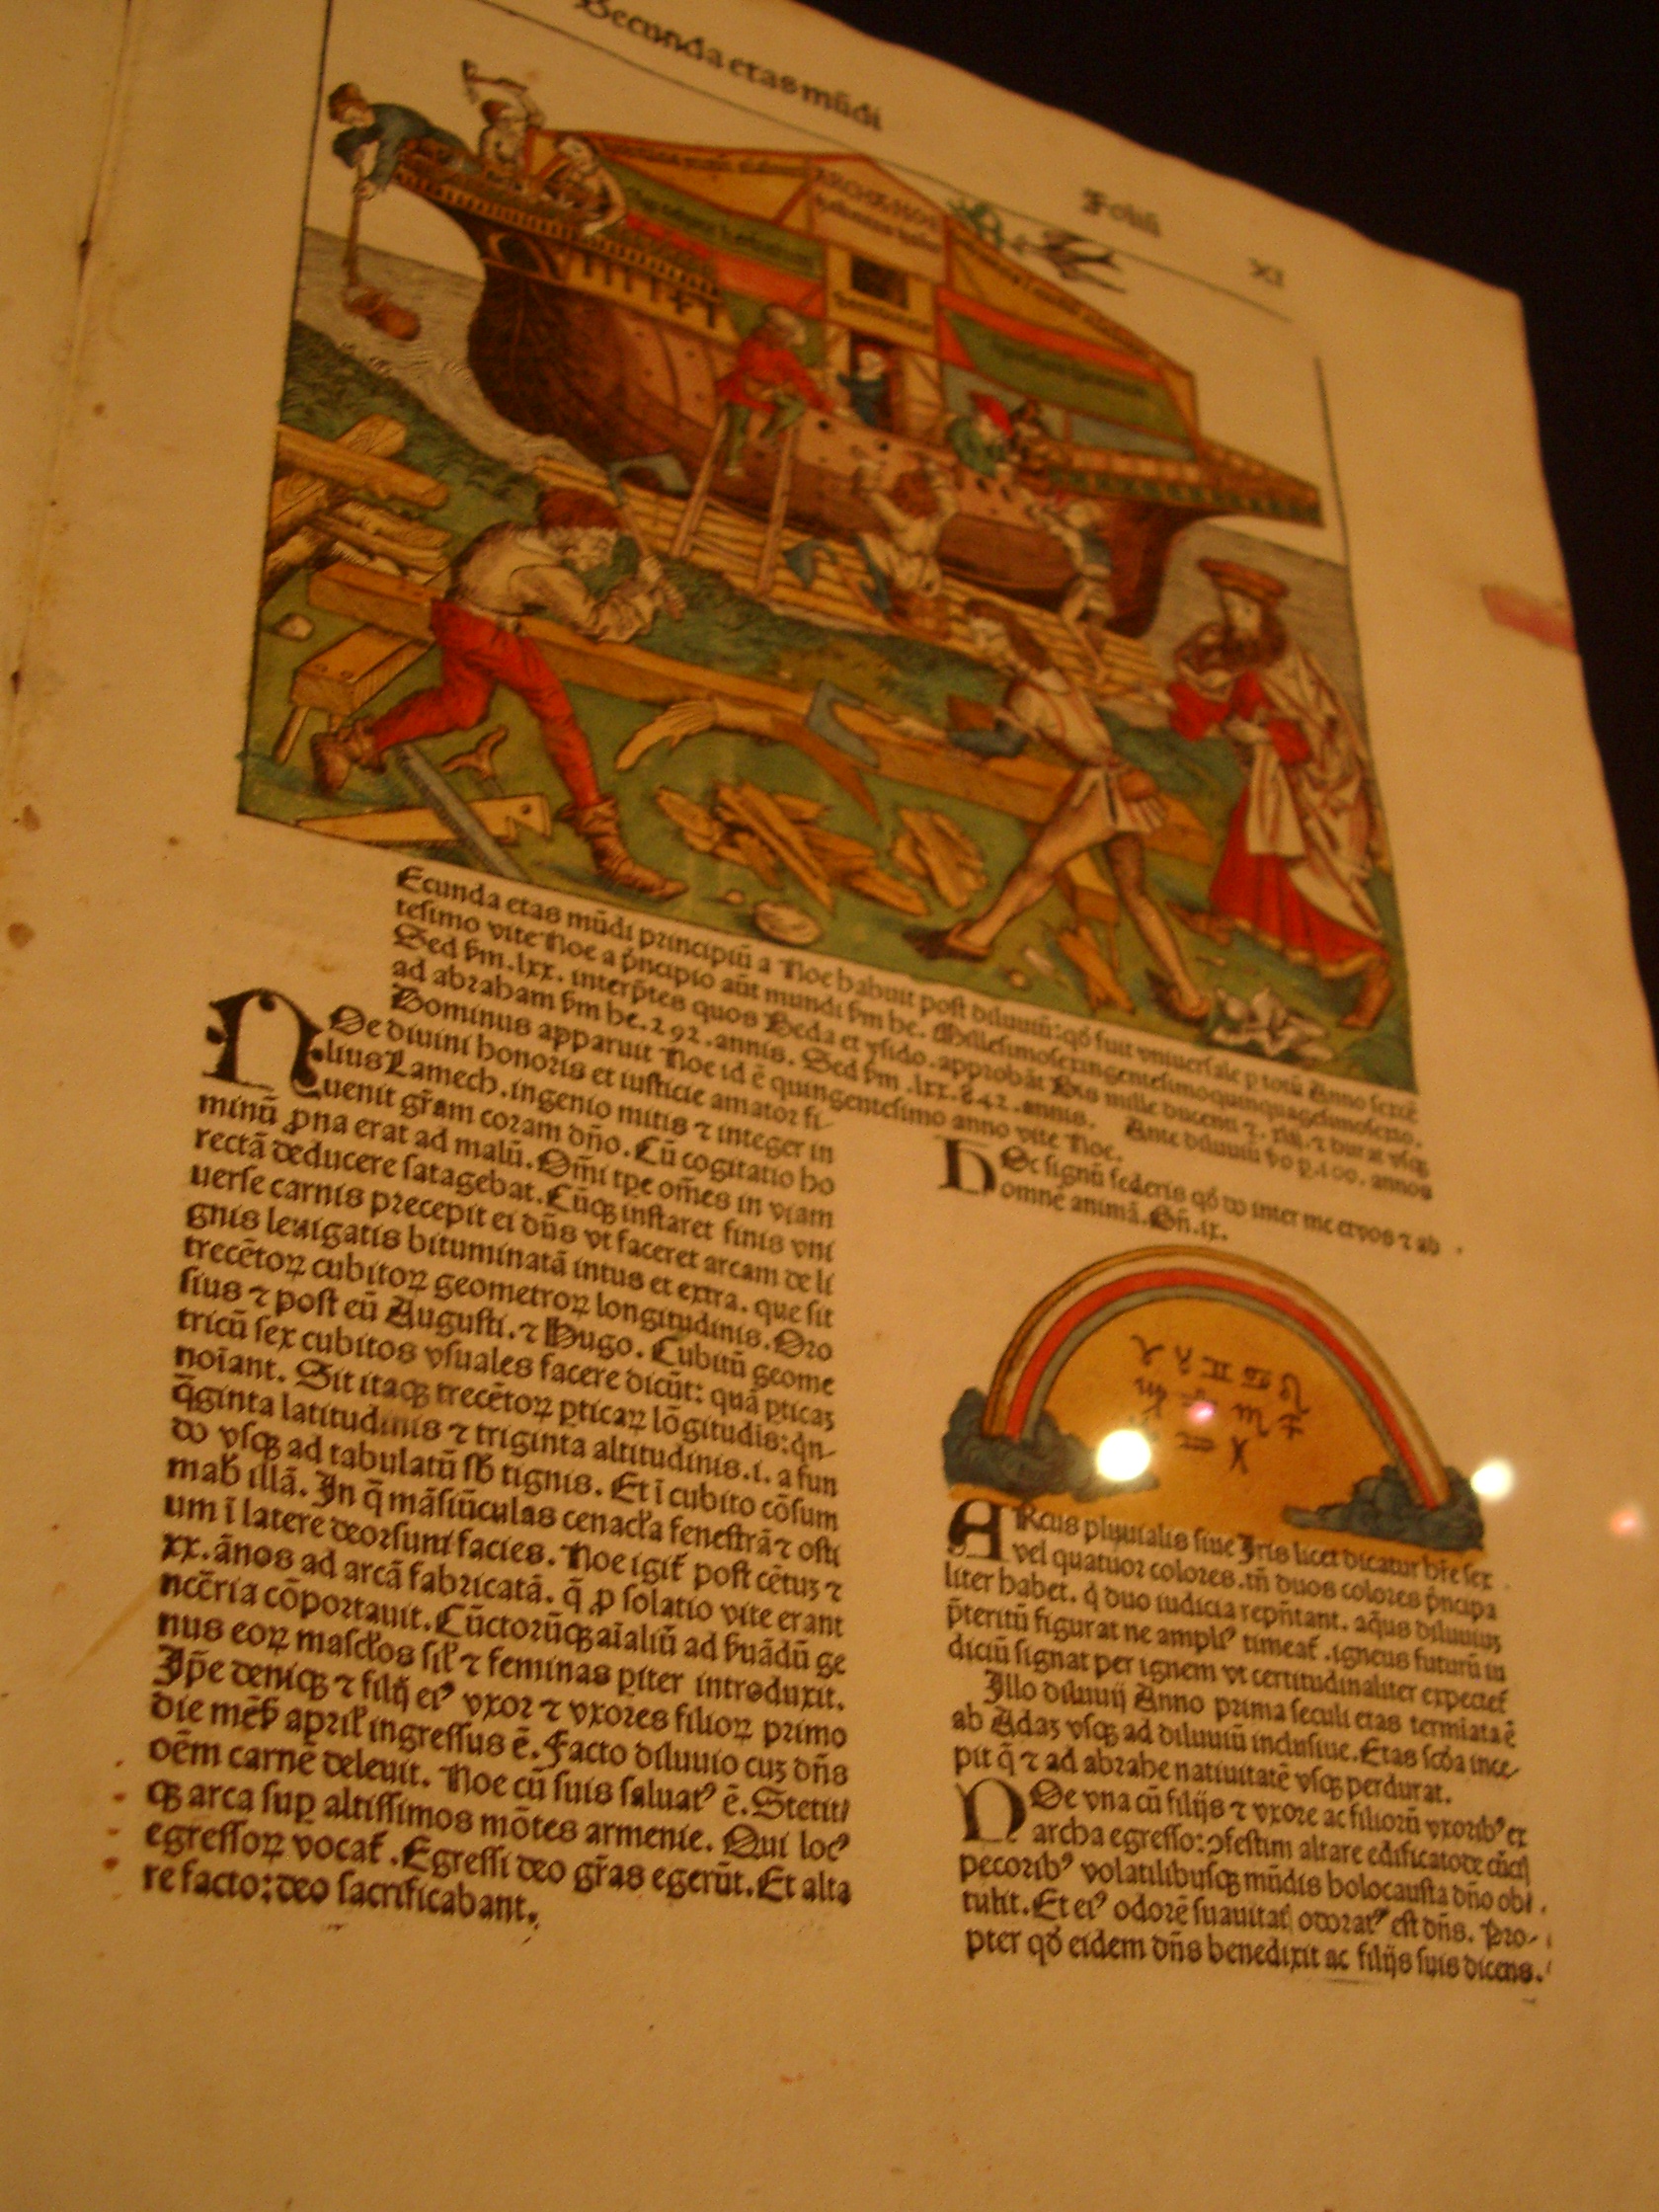 Secunda etas mũdi
Foliũ XI
Ecunda etas mũdi principiũ a Noe habuit post diluuiũ: qđ fuit vniuersale p totũ Anno sexcẽ
tesimo vite Noe a p̃ncipio aũt mundi ẜm he. Millesimosexingentesimoquinquagesimosexto.
Sed ẜm .lxx. interp̃tes quos Beda et ysido. approbãt Bis mille ducenti ⁊ .xlij. ⁊ durat vsq̃
ad abraham ẜm he. 292. annis. Sed ẜm .lxx. 842. annis. Ante diluuiũ ṽo p .100. annos
Dominus apparuit Noe id ẽ quingentesimo anno vite Noe.
NOe diuini honoris et iusticie amator fi-
lius Lamech. ingenio mitis ⁊ integer in
uenit gr̃am coram dño. Cũ cogitatio ho
minũ ꝓna erat ad malũ. Om̃i tp̃e om̃es in viam
rectã deducere satagebat. Cũqꝫ instaret finis vni
uerse carnis precepit ei dñs vt faceret arcam de li
gnis leuigatis bituminatã intus et extra. que sit
trecẽtoꝝ cubitoꝝ geometroꝝ longitudinis. Oro
sius ⁊ post eũ Augusti. ⁊ Hugo. Cubitũ geome
tricũ sex cubitos vsuales facere dicũt: quã pticaꝫ
noiant. Sit itaqꝫ trecẽtoꝝ pticaꝝ lõgitudis: q̃n-
q̃ginta latitudinis ⁊ triginta altitudinis .i. a fun
do vsqꝫ ad tabulatũ sƀ tignis. Et ĩ cubito cõsum
mab illã. In q̃ mãsiũculas cenacƚa fenestrã ⁊ osti
um ĩ latere deorsum facies. Noe igit̃ post cẽtuꝫ ⁊
xx. ãnos ad arcã fabricatã. q̃ ꝓ solatio vite erant
ncc̃ria cõportauit. Cũctorũqꝫ aĩaliũ ad ẜuãdũ ge
nus eoꝝ mascƚos siƚ ⁊ feminas piter introduxit.
Ip̃e deniqꝫ ⁊ filij ei⁹ vxor ⁊ vxores filioꝝ primo
die mẽẜ apriƚ ingressus ẽ. Facto diluuio cuꝫ dñs
oẽm carnẽ deleuit. Noe cũ suis saluat⁹ ẽ. Stetit
qꝫ arca sup altissimos mõtes armenie. Qui loc⁹
egressoꝝ vocat̃. Egressi deo gr̃as egerũt. Et alta
re facto: deo sacrificabant.
HOc signũ federis qđ do inter me et vos ⁊ ad
omnẽ animã. Gñ. ix.
♈ ♉ ♊ ♋ ♌
♍ ♎ ♏ ♐
♒ ♓
ARcus pluuialis siue Iris licet dicatur hr̃e sex
vel quatuor colores. tñ duos colores p̃ncipa
liter habet. q̃ duo iudicia rep̃ñtant. aq̃us diluuiuꝫ
p̃teritũ figurat ne ampli⁹ timeat̃. igneus futurũ iu
diciũ signat per ignem vt certitudinaliter expectet̃
Illo diluuij Anno prima seculi etas termiata ẽ
ab Adaꝫ vsqꝫ ad diluuiũ inclusiue. Etas scđa ince-
pit q̃ ⁊ ad abrahe natiuitatẽ vsqꝫ perdurat.
NOe vna cũ filijs ⁊ vxore ac filiorũ vxorib⁹ ex
archa egresso: ↄfestim altare edificato de cũct͛
pecorib⁹ volatilibusqꝫ mũdis holocausta dño ob-
tulit. Et ei⁹ odorẽ suauitat͛ odorat⁹ est dñs. Pro-
pter qđ eidem dñs benedixit ac filijs suis dicens.